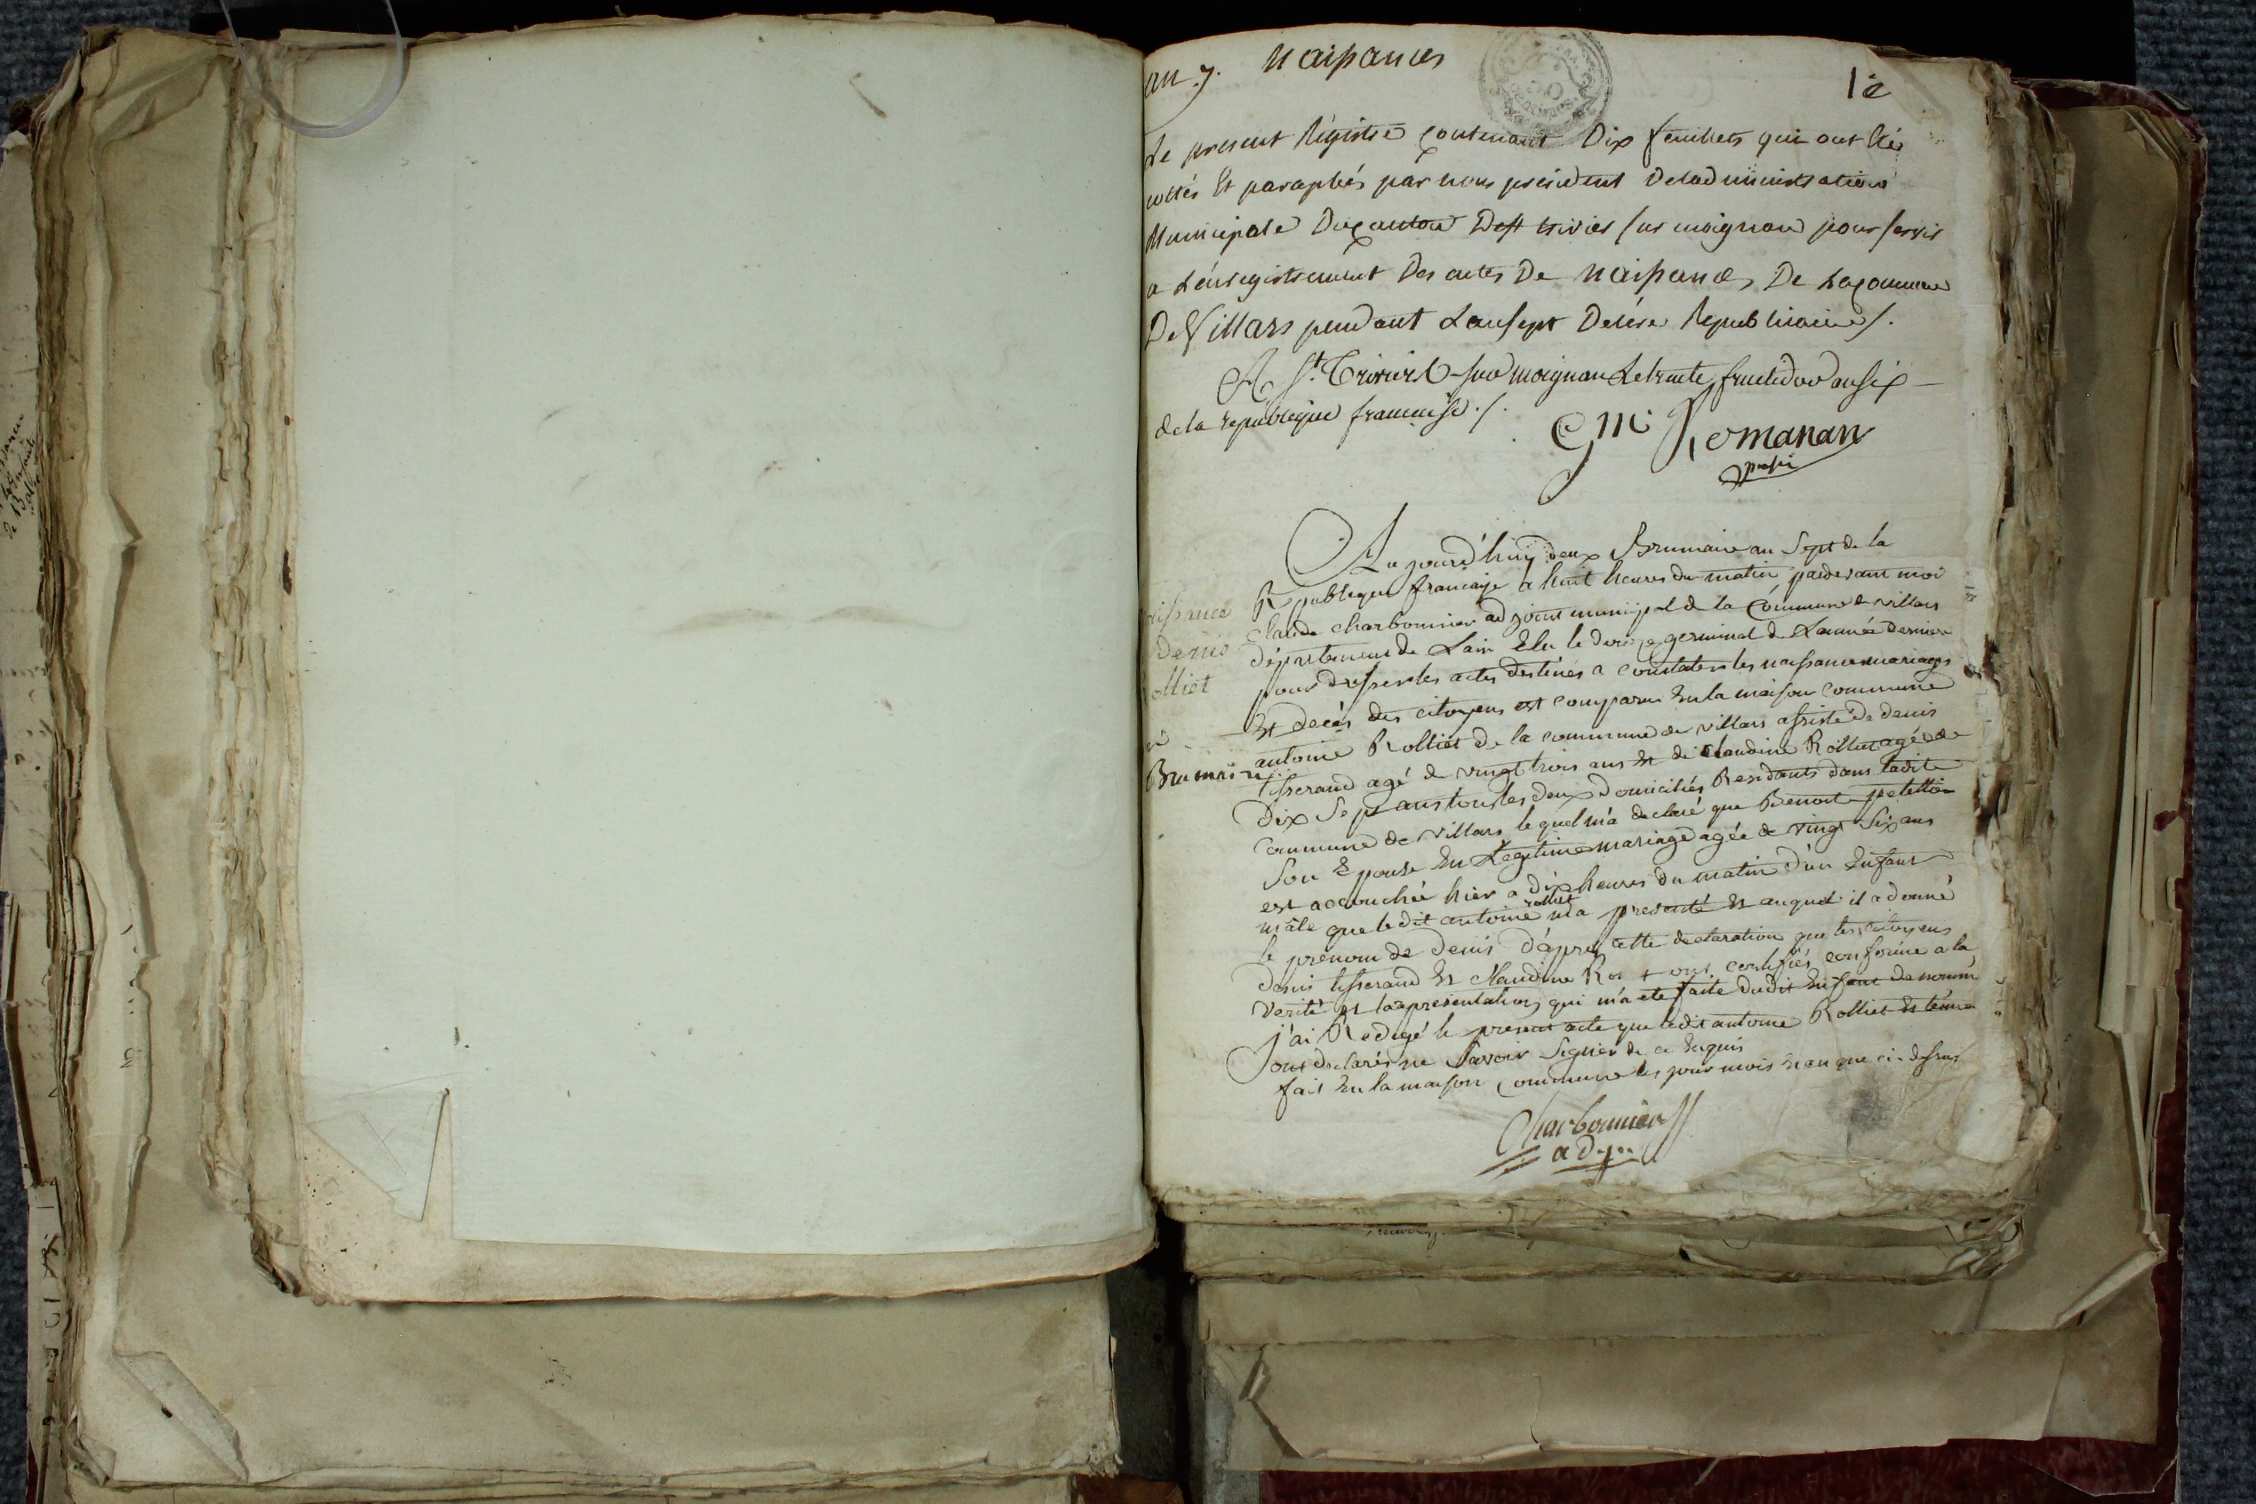 an 7. Naissances
1e
Le present Régistre contenant Dix feuillets qui ont Eté
cottés Et paraphés par nous president Deladministration
Municipale Du canton Dest trivier sur moignan pour servir
a L'énregistrement Des actes De Naissances De La commune
De Villars pendant Lan sept De l'ére Republicaine /.
A St. Trivier sur moignan Le trente fructidor an six
de la republique française ./.
C m Romanan
presi
Aujourd'huy deux Brumaire an Sept de la
Republique francaise a huit heures du matin, pardevant moi
Claude Charbonnier adjoint municipal de la Commune de villars
département de Lain Elu le douze germinal de Lannée derniere
pour dresser les actes destinés a constater les naissances mariages
Et decés des citoyens est comparu En la maison commune
antoine Rolliet de la commune de villars assisté de denis
tisserand agé de vingt trois ans Et de claudine Rolliet agée de
Dix Sept ans tous les deux Domiciliés Residants dans ladite
commune de villars lequel m'a declaré que Benoite petition
Son Epouse En Legitime mariage agée de vingt Six ans
est accouchée hier a dix heures du matin d'un Enfant
mâle que ledit antoine rolliet m'a presenté Et auquel il a donné
le prénom de Denis d'après cette declaration que les citoyens
denis tisserand Et Claudine Ro t ont certifiés conforme a la
verité Et la representation qui m'a eté faite dudit Enfant denommé
j'ai Redigé le present acte que ledit antoine Rolliet Et témoins
ont declarés ne Savoir Signer de ce Enquis
fait En la maison Commune les jour mois Et an que ci-dessus
Charbonnier
adj..
issance
Denis
olliet
Brumaire